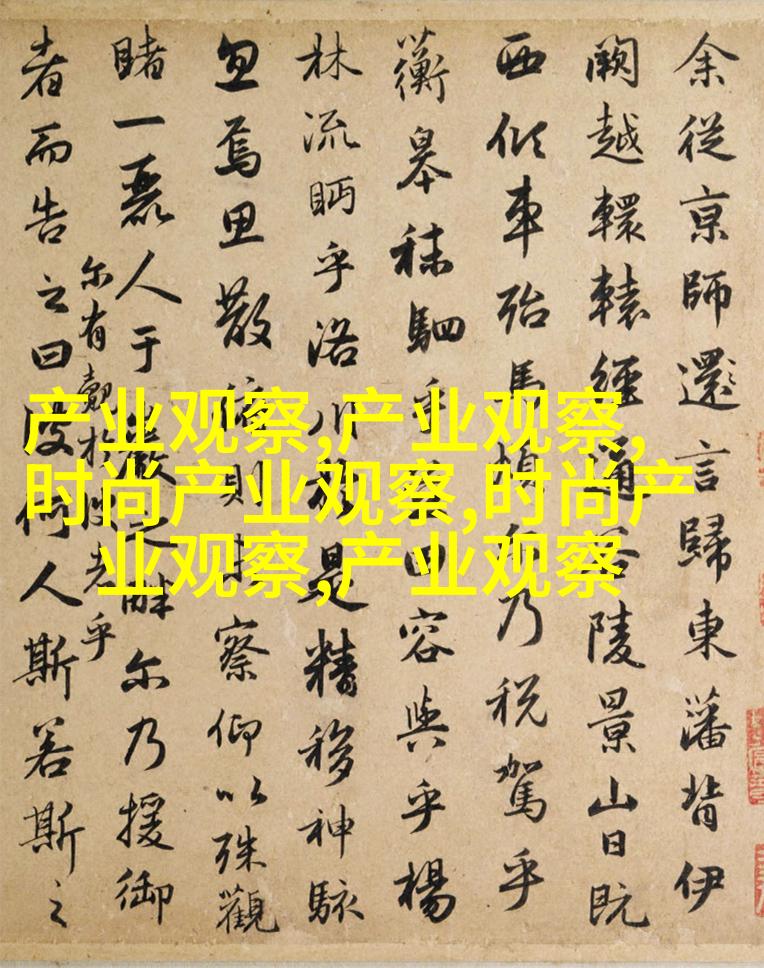 余從京師還言歸東藩背伊
闕越轘轅經通谷陵景山日既
西傾車殆馬煩尔乃税駕乎
蘅皋秣駟乎田容與乎楊
林流眄乎洛川於是精移神駭
忽焉思散俯則察仰以殊觀
睹一麗人于巖之畔尔乃援御
尔有覿於彼者乎
者而告之曰彼何人斯若斯之
产业观察,产业观察,
时尚产业观察,时尚产
业观察,产业观察